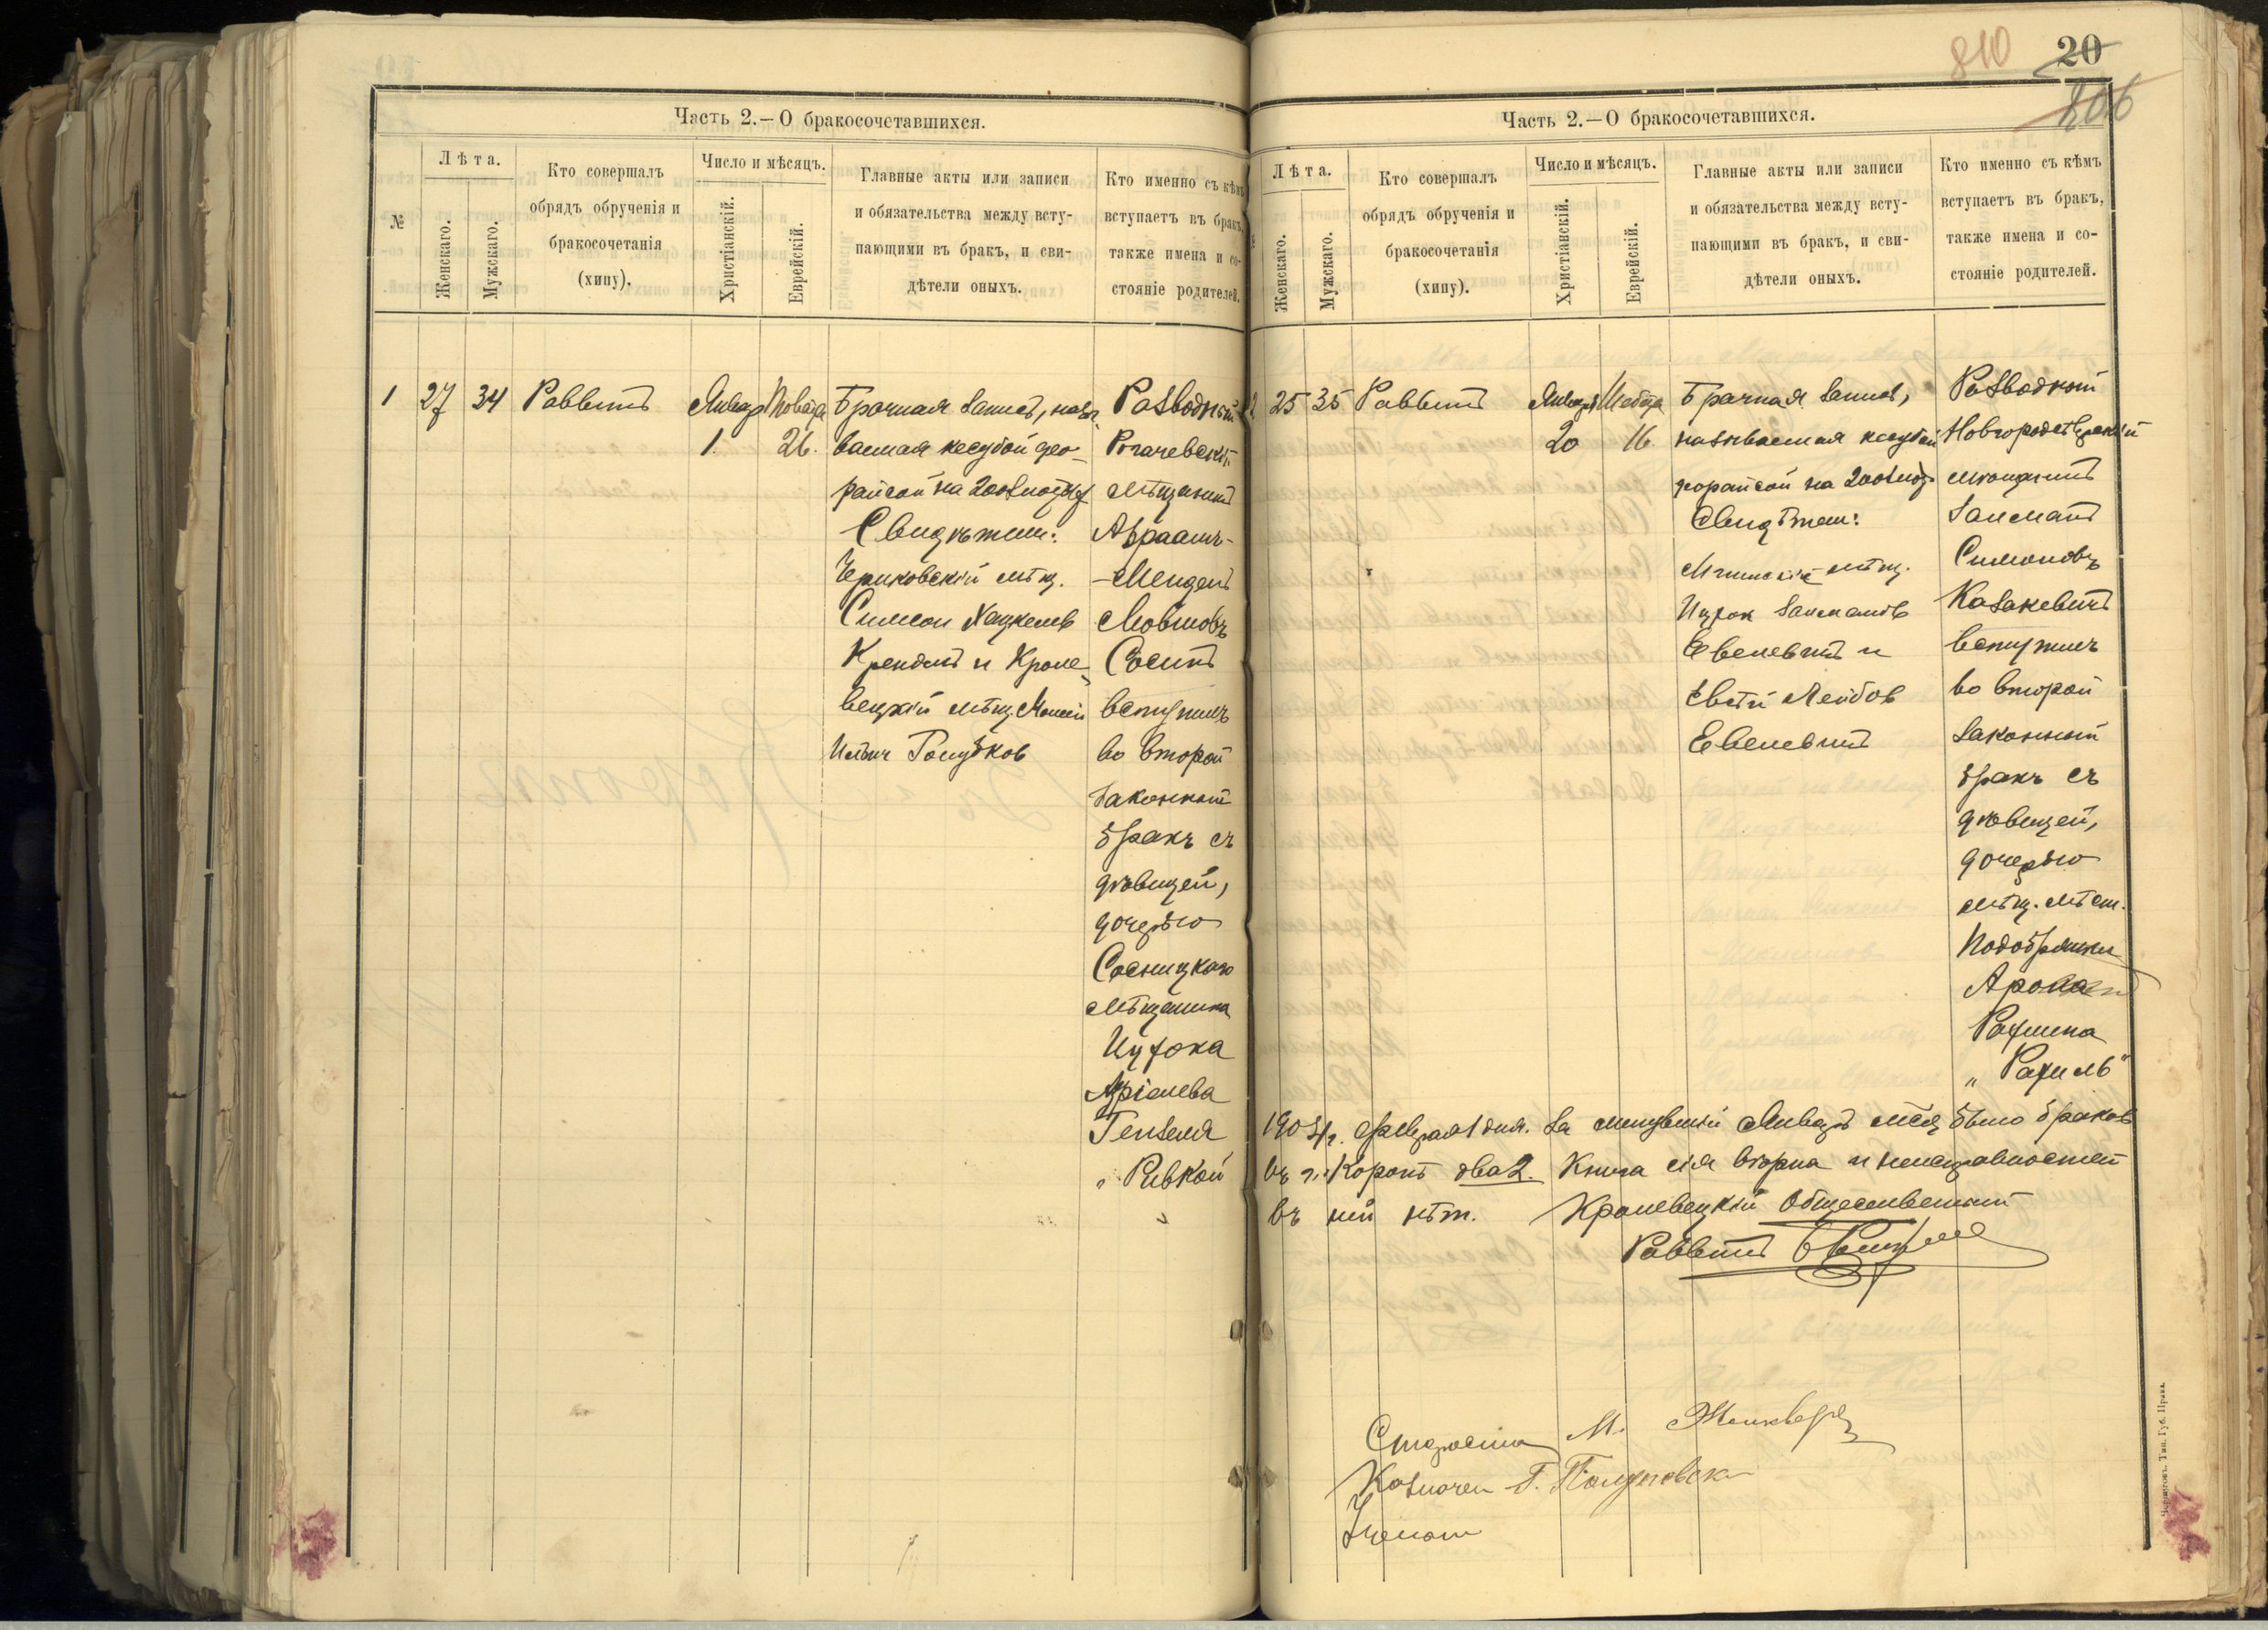 Часть 2.—О бракосочетавшихся.
№
Лѣта.
Женскаго.
Мужскаго.
Кто совершалъ
обрядъ обрученія и
бракосочетанія
(хипу).
Число и мѣсяцъ.
Христіанскій.
Еврейскій.
Главные акты или записи
и обязательства между всту-
пающими въ бракъ, и сви-
дѣтели оныхъ.
Кто именно съ кѣмъ
вступаетъ въ бракъ,
также имена и со-
стояніе родителей.
1
27
34
Раввинъ
Январ
1.
26.
Брачная запись, назы-
ваемая кесубой део-
райсой на 200 злот
Свидѣтели:
Чериковскій мѣщ.
Симеон Хацкелев
Крендель и Кроле-
вецкій мѣщ. Моисей
Голубков
Разводный
Рогачевскій
мѣщанинъ
Абраамъ-
-Мендель
Мовшовъ
Сосинъ
вступилъ
во второй
законный
бракъ съ
дѣвицей,
дочерью
Сосницкаго
мѣщанина
Ицхока
Азріелева
Гензеля
„ Ривкой
810
20
806
Часть 2.—О бракосочетавшихся.
Лѣта.
Женскаго.
Мужскаго.
Кто совершалъ
обрядъ обрученія и
бракосочетанія
(хипу).
Число и мѣсяцъ.
Христіанскій.
Еврейскій.
Главные акты или записи
и обязательства между всту-
пающими въ бракъ, и сви-
дѣтели оныхъ.
Кто именно съ кѣмъ
вступаетъ въ бракъ,
также имена и со-
стояніе родителей.
2
25
35
Раввинъ
Январ
20
16.
Брачная запись,
называемая кесубой
деорайсой на 200 злот
Свидѣтели:
Мглинскій мѣщ.
Ицхок Залманов
Евелевичъ и
Лейбов
Евелевичъ
Разводный
Новгородсѣверскій
мѣщанинъ
Залманъ
Симоновъ
Казакевичъ
вступилъ
во второй
законный
бракъ съ
дѣвицей,
дочерью
мѣщ. мѣст.
Подобрянки
Арона
„ Рахиль“
Февраля 1 дня. За минувшій Январь м-цъ было браков
въ г. Коропѣ два 2. Книга сія вѣрна и неисправностей
въ ней нѣт. Кролевецкій Общественный
Раввинъ
Староста М.
Казначей
Ученый
Черниговъ. Тип. Губ. Правл.